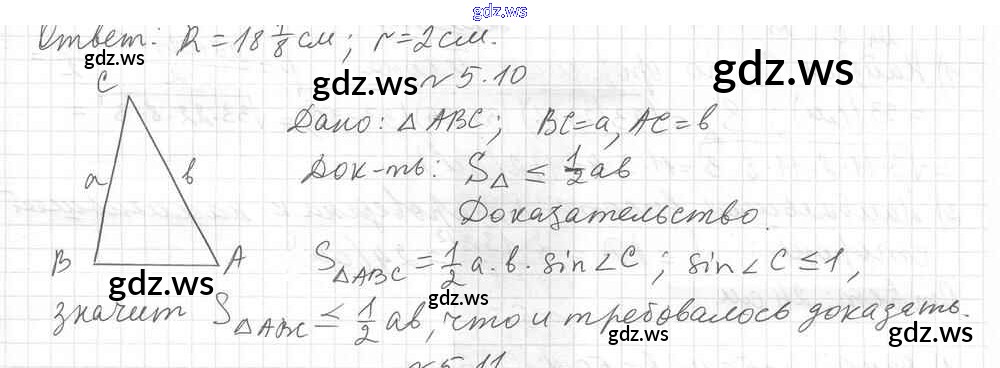 gdz.ws
Ответ: R = 18 1/8 см; r = 2 см.
gdz.ws
gdz.ws
gdz.ws
№ 5.10
C
Дано: △ABC; BC=a, AC=b
Док-ть: S△ ≤ 1/2 ab
a
b
Доказательство.
B
A
S△ABC = 1/2 a·b·sin∠C; sin∠C ≤ 1,
gdz.ws
gdz.ws
значит S△ABC ≤ 1/2 ab, что и требовалось доказать.
gdz.ws
gdz.ws
№ 5.11